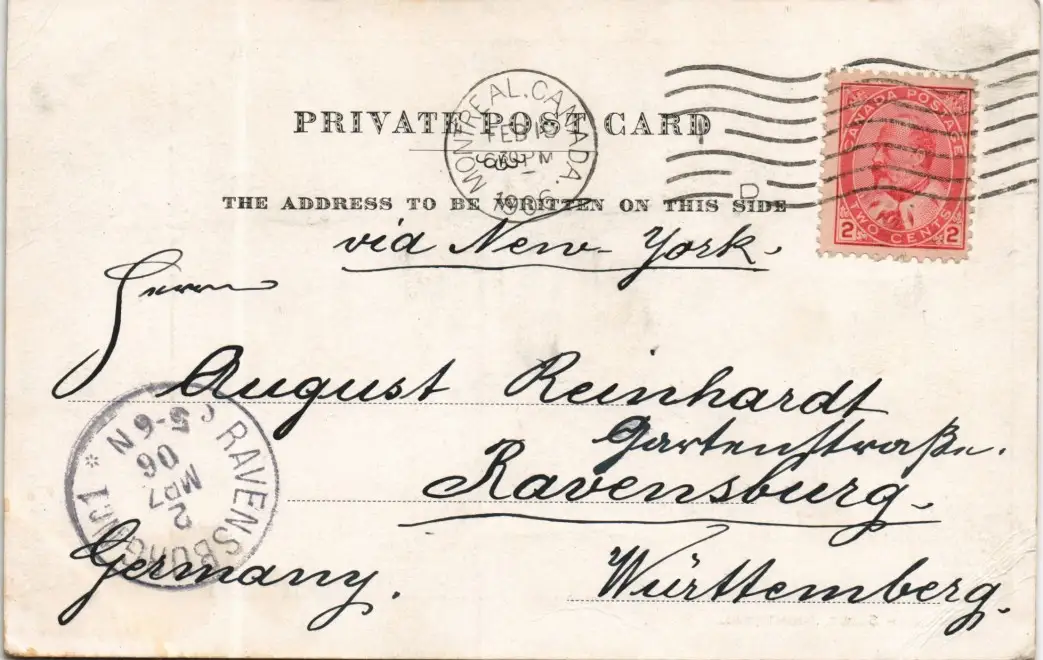 MONTREAL. CANADA.
FEB 1
PM
1906
D
CANADA POSTAGE
TWO CENTS
2 2
PRIVATE POST CARD
THE ADDRESS TO BE WRITTEN ON THIS SIDE
via New-York.
Herrn
August Reinhardt
Gartenstraße.
Ravensburg.
Germany. Württemberg.
RAVENSBURG
* 5-6 N
06
MRZ
2